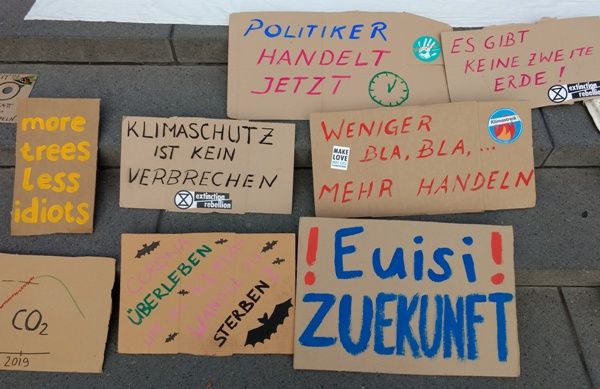 POLITIKER
HANDELT
JETZT
ES GIBT
KEINE ZWEITE
ERDE!
extinction
rebellion
more
trees
less
idiots
KLIMASCHUTZ
IST KEIN
VERBRECHEN
extinction
rebellion
WENIGER
BLA, BLA,...
MEHR HANDELN
MAKE
LOVE
Klimastreik
CO2
2019
CORONA
ÜBERLEBEN
UM IM
KLIMA
WANDEL
STERBEN
! Euisi !
ZUEKUNFT